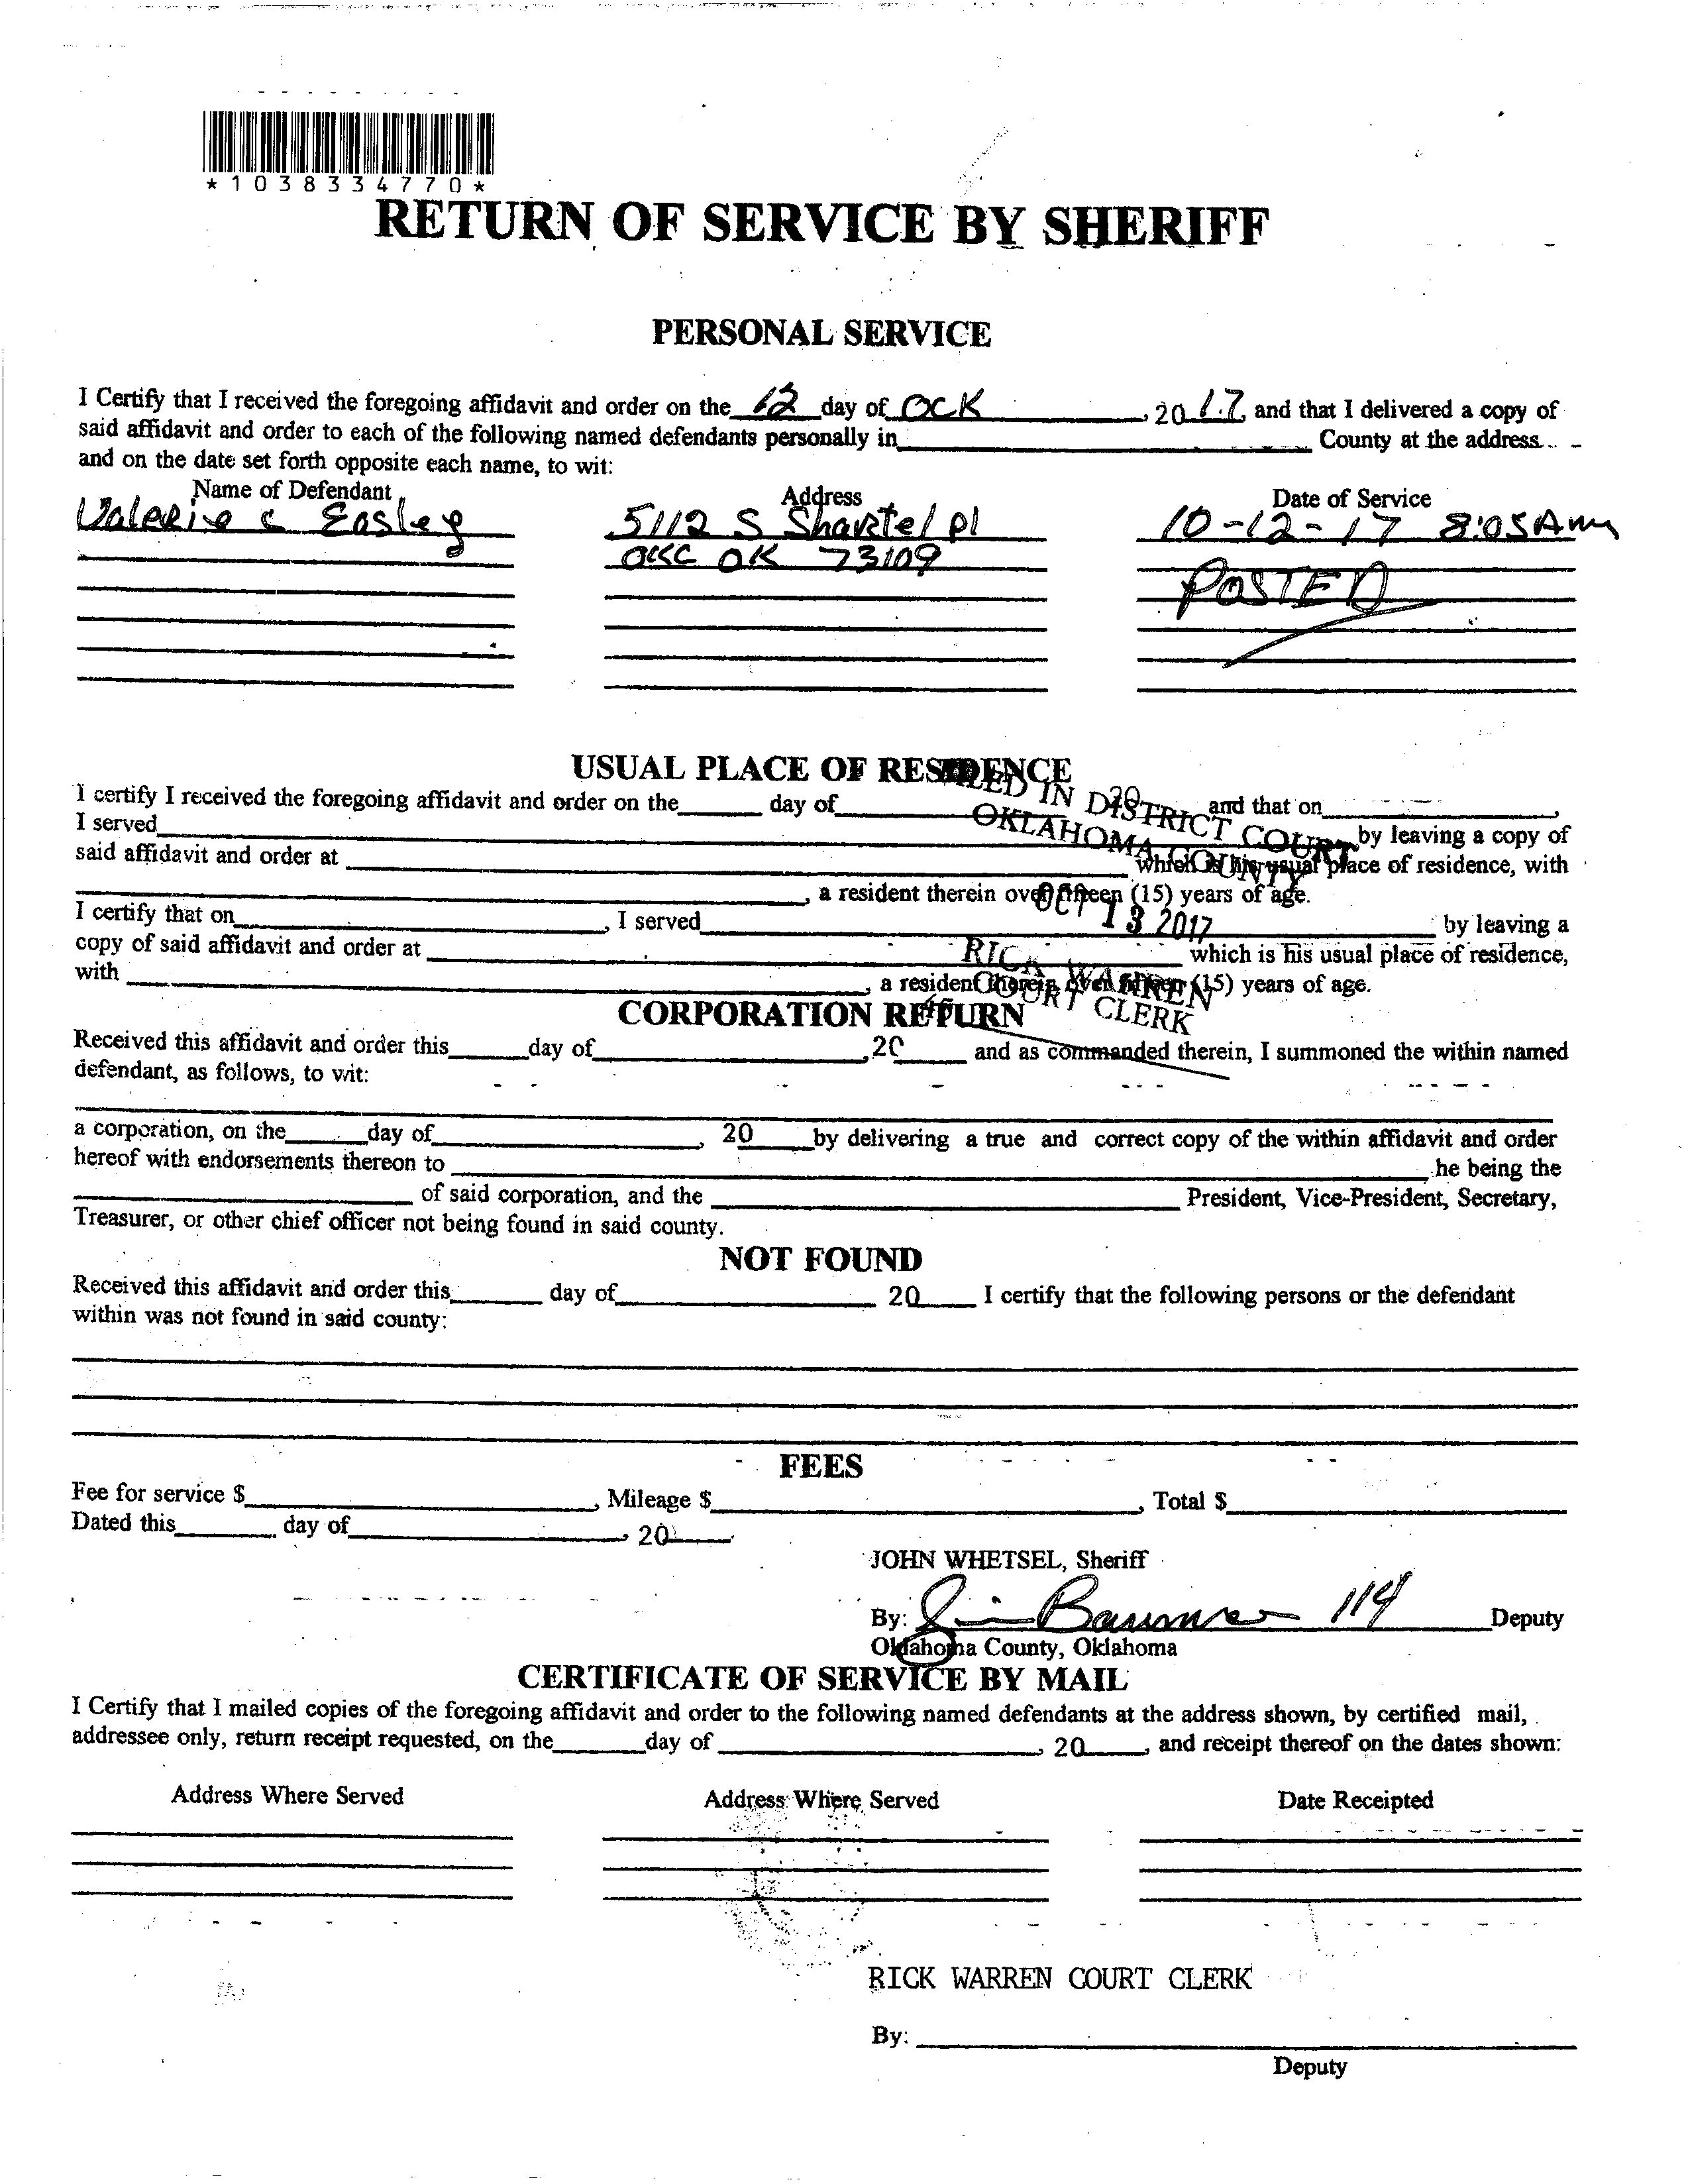 *1038334770*
RETURN OF SERVICE BY SHERIFF
PERSONAL SERVICE
I Certify that I received the foregoing affidavit and order on the 12 day of OCK, 2017 and that I delivered a copy of
said affidavit and order to each of the following named defendants personally in County at the address
and on the date set forth opposite each name, to wit:
Name of Defendant Address Date of Service
Valerie C Easley 5112 S Shartel pl 10-12-17 8:05 Am
OKC OK 73109
POSTED
USUAL PLACE OF RESIDENCE
I certify I received the foregoing affidavit and order on the day of 20 and that on,
I served by leaving a copy of
said affidavit and order at which is his usual place of residence, with
, a resident therein over fifteen (15) years of age.
I certify that on, I served by leaving a
copy of said affidavit and order at which is his usual place of residence,
with, a resident therein over fifteen (15) years of age.
FILED IN DISTRICT COURT
OKLAHOMA COUNTY
OCT 13 2017
RICK WARREN
COURT CLERK
CORPORATION RETURN
Received this affidavit and order this day of, 20 and as commanded therein, I summoned the within named
defendant, as follows, to wit:
a corporation, on the day of, 20 by delivering a true and correct copy of the within affidavit and order
hereof with endorsements thereon to he being the
of said corporation, and the President, Vice-President, Secretary,
Treasurer, or other chief officer not being found in said county.
NOT FOUND
Received this affidavit and order this day of 20 I certify that the following persons or the defendant
within was not found in said county:
FEES
Fee for service $, Mileage $, Total $
Dated this day of, 20
JOHN WHETSEL, Sheriff
By: 114 Deputy
Oklahoma County, Oklahoma
CERTIFICATE OF SERVICE BY MAIL
I Certify that I mailed copies of the foregoing affidavit and order to the following named defendants at the address shown, by certified mail,
addressee only, return receipt requested, on the day of, 20, and receipt thereof on the dates shown:
Address Where Served Address Where Served Date Receipted
RICK WARREN COURT CLERK
By:
Deputy